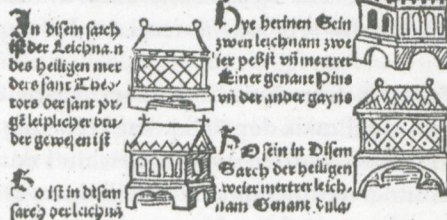 In disem sarch
ist der Leichnam
des heiligen mer
ders sant Theo
tors der sant yor
gē leiplicher bru
der gewesen ist
So ist in disem
sarch der leichnā
Hye herinen Sein
zwen leichnam zwe
ier pebst vñ mertrer
Einer genant Pius
vñ der ander gayus
So sein in Disem
Sarch der heiligen
zweier mertrer leich
nam Genant